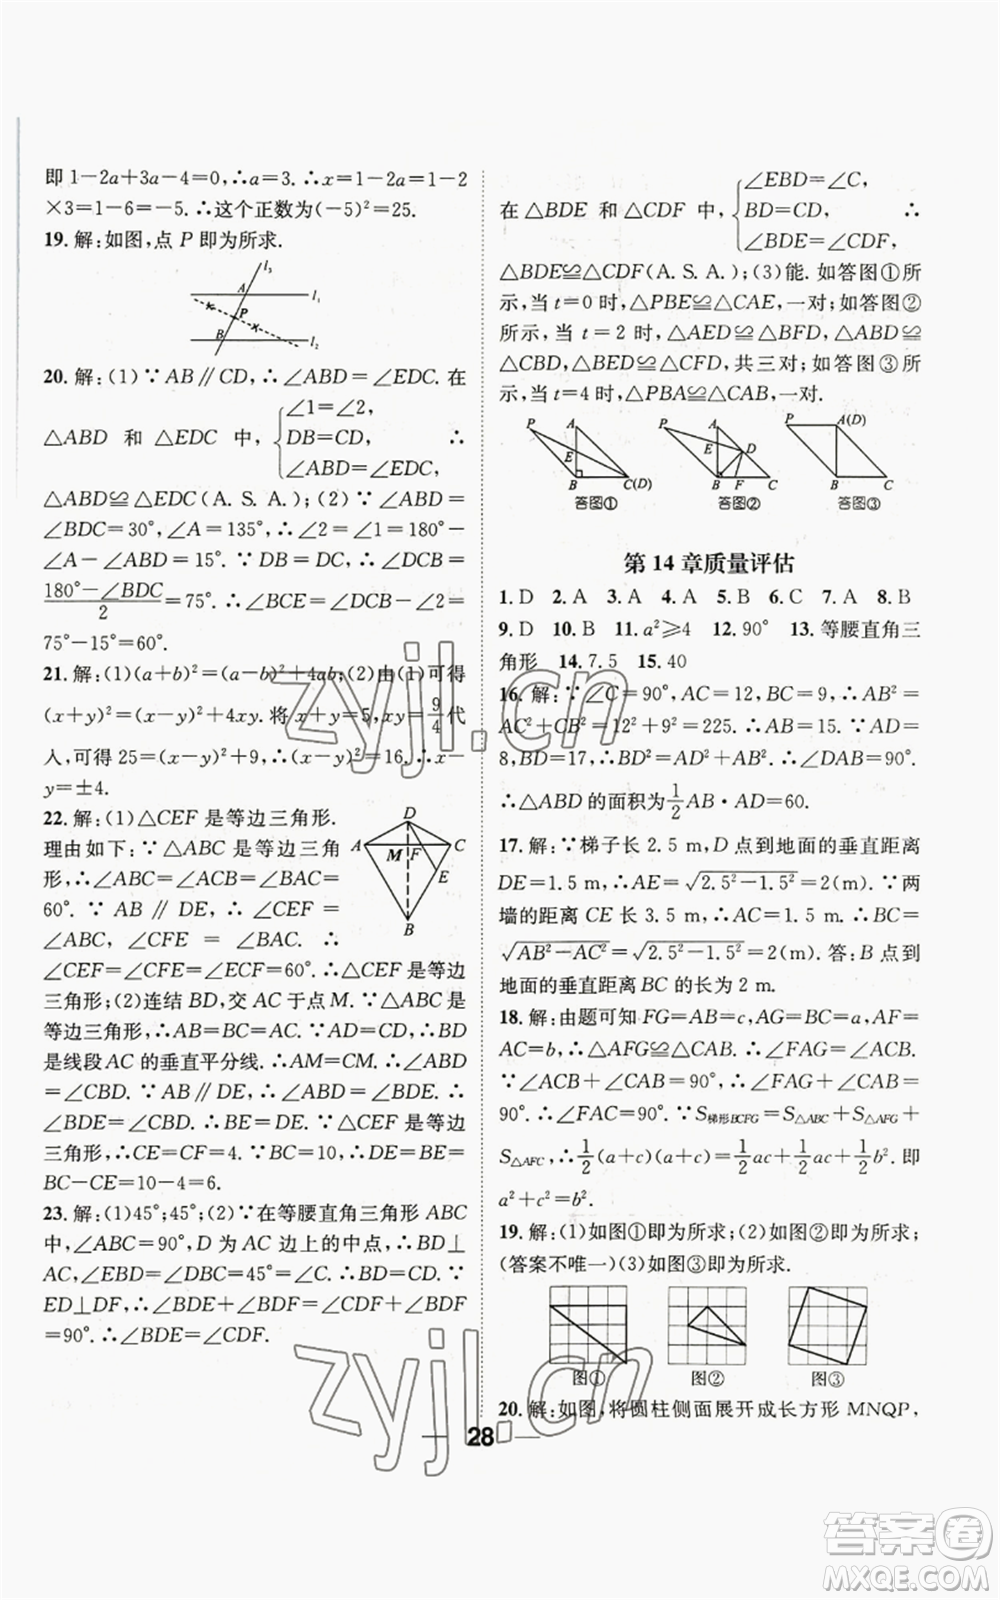 即 1-2a+3a-4=0,∴a=3.∴x=1-2a=1-2
×3=1-6=-5.∴这个正数为(-5)²=25.
19.解:如图,点 P 即为所求.
l₃
A
l₁
P
B
l₂
20.解:(1)∵AB∥CD,∴∠ABD=∠EDC.在
△ABD 和 △EDC 中,{∠1=∠2, DB=CD, ∠ABD=∠EDC, ∴
△ABD≌△EDC(A.S.A.);(2)∵∠ABD=
∠BDC=30°,∠A=135°,∴∠2=∠1=180°-
∠A-∠ABD=15°.∵DB=DC,∴∠DCB=
(180°-∠BDC)/2=75°.∴∠BCE=∠DCB-∠2=
75°-15°=60°.
21.解:(1)(a+b)²=(a-b)²+4ab;(2)由(1)可得
(x+y)²=(x-y)²+4xy.将 x+y=5,xy=9/4代
入,可得 25=(x-y)²+9,∴(x-y)²=16,∴x-
y=±4.
22.解:(1)△CEF 是等边三角形.
理由如下:∵△ABC 是等边三角
形,∴∠ABC=∠ACB=∠BAC=
60°.∵AB∥DE,∴∠CEF=
∠ABC,∠CFE=∠BAC.∴
∠CEF=∠CFE=∠ECF=60°.∴△CEF 是等边
三角形;(2)连结 BD,交 AC 于点 M.∵△ABC 是
等边三角形,∴AB=BC=AC.∵AD=CD,∴BD
是线段 AC 的垂直平分线.∴AM=CM.∴∠ABD
=∠CBD.∵AB∥DE,∴∠ABD=∠BDE.∴
∠BDE=∠CBD.∴BE=DE.∵△CEF 是等边
三角形,∴CE=CF=4.∵BC=10,∴DE=BE=
BC-CE=10-4=6.
D
A
M
F
C
E
B
23.解:(1)45°;45°;(2)∵在等腰直角三角形 ABC
中,∠ABC=90°,D 为 AC 边上的中点,∴BD⊥
AC,∠EBD=∠DBC=45°=∠C.∴BD=CD.∵
ED⊥DF,∴∠BDE+∠BDF=∠CDF+∠BDF
=90°.∴∠BDE=∠CDF.
在 △BDE 和 △CDF 中,{∠EBD=∠C, BD=CD, ∠BDE=∠CDF, ∴
△BDE≌△CDF(A.S.A.);(3)能.如答图①所
示,当 t=0 时,△PBE≌△CAE,一对;如答图②
所示,当 t=2 时,△AED≌△BFD,△ABD≌
△CBD,△BED≌△CFD,共三对;如答图③所
示,当 t=4 时,△PBA≌△CAB,一对.
P
A
E
B
C(D)
答图①
P
A
E
D
B
F
C
答图②
P
A(D)
B
C
答图③
第 14 章质量评估
1.D 2.A 3.A 4.A 5.B 6.C 7.A 8.B
9.D 10.B 11.a²≥4 12.90° 13.等腰直角三
角形 14.7.5 15.40
16.解:∵∠C=90°,AC=12,BC=9,∴AB²=
AC²+CB²=12²+9²=225.∴AB=15.∵AD=
8,BD=17,∴DB²=AD²+AB².∴∠DAB=90°.
∴△ABD 的面积为1/2AB·AD=60.
17.解:∵梯子长 2.5 m,D 点到地面的垂直距离
DE=1.5 m,∴AE=√(2.5²-1.5²)=2(m).∵两
墙的距离 CE 长 3.5 m,∴AC=1.5 m.∴BC=
√(AB²-AC²)=√(2.5²-1.5²)=2(m).答:B 点到
地面的垂直距离 BC 长为 2 m.
18.解:由题可知 FG=AB=c,AG=BC=a,AF=
AC=b,∴△AFG≌△CAB.∴∠FAG=∠ACB.
∵∠ACB+∠CAB=90°,∴∠FAG+∠CAB=
90°.∴∠FAC=90°.∵S梯形BCFG=S△ABC+S△AFG+
S△AFC,∴1/2(a+c)(a+c)=1/2ac+1/2ac+1/2b².即
a²+c²=b².
19.解:(1)如图①即为所求;(2)如图②即为所求;
(答案不唯一)(3)如图③即为所求.
图①
图②
图③
20.解:如图,将圆柱侧面展开成长方形 MNQP,
28
zyjl.cn
zyjl.cn
答案圈
MXQE.COM